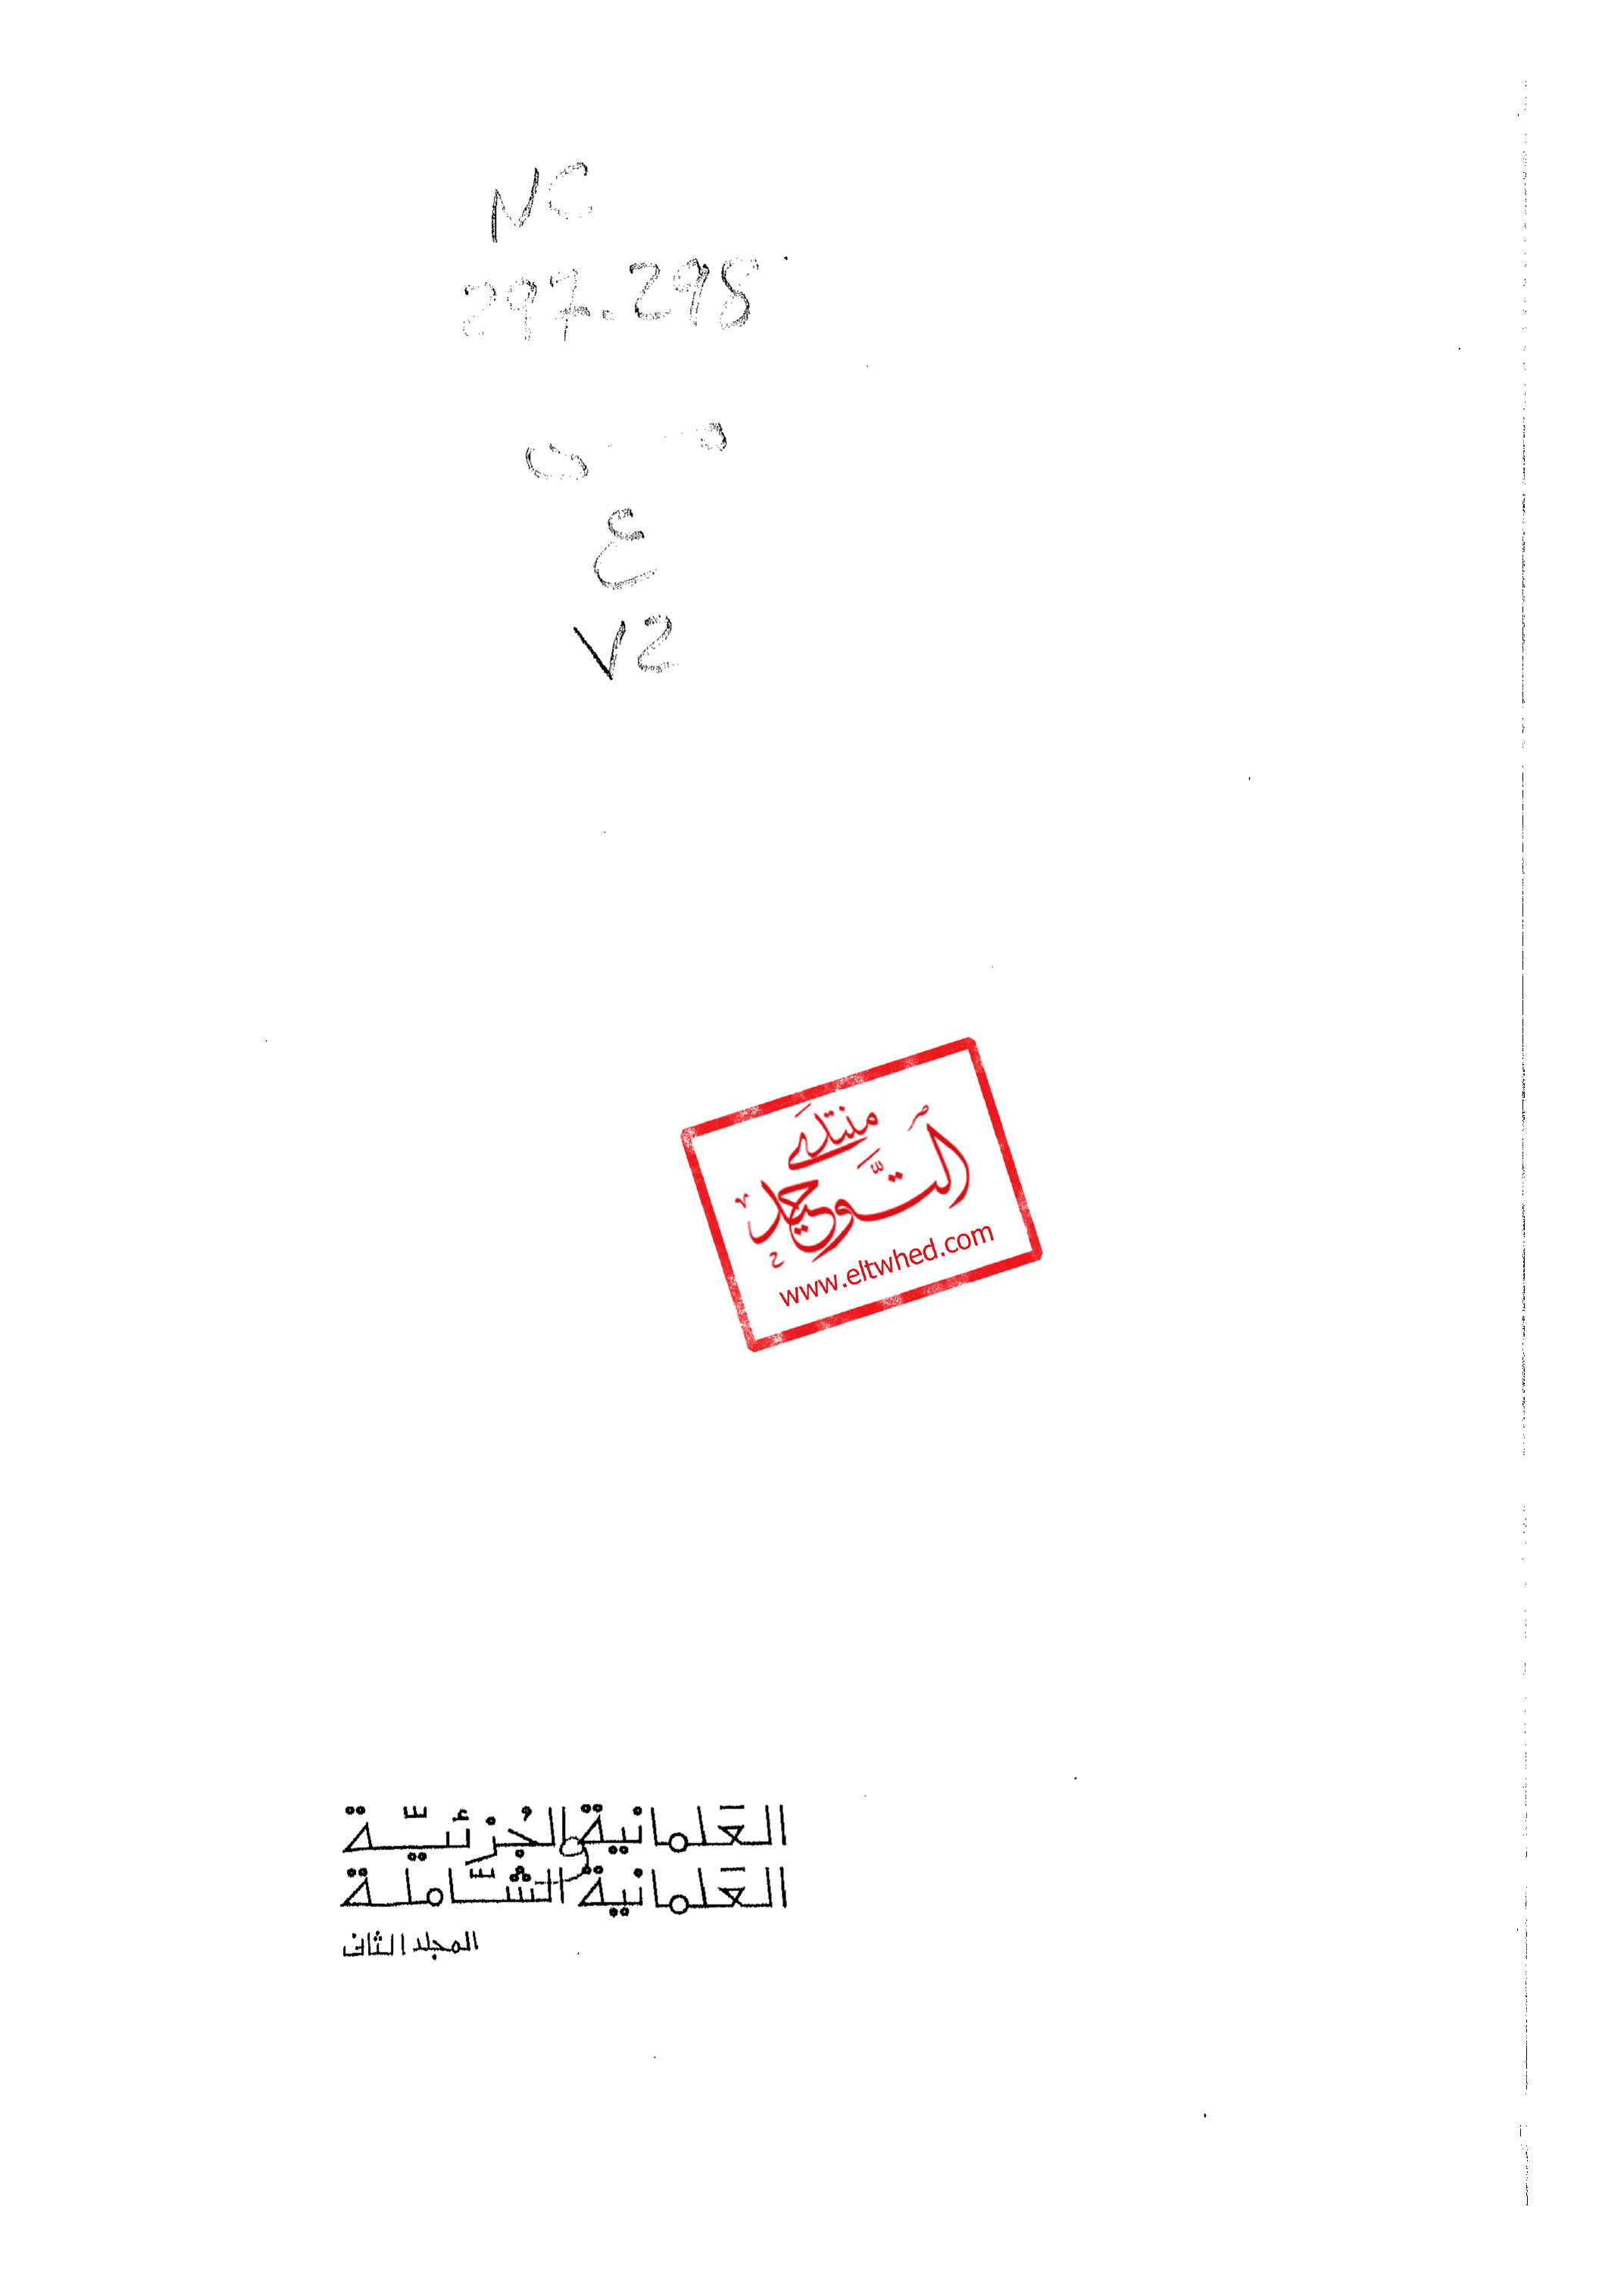 NC
297.298
ع
V2
منتدى
التَّوحيد
www.eltwhed.com
العَلمانية الجُزئيّة
و
العَلمانية الشّاملة
المجلد الثانى